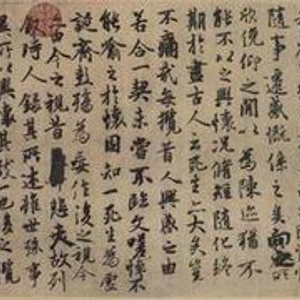 隨事遷感慨係之矣向之所
欣俛仰之閒以為陳迹猶不
能不以之興懷況脩短隨化終
期於盡古人云死生亦大矣豈
不痛哉每攬昔人興感之由
若合一契未嘗不臨文嗟悼不
能喻之於懷固知一死生為虛
誕齊彭殤為妄作後之視今
亦由今之視昔悲夫故列
敘時人錄其所述雖世殊事
異所以興懷其致一也後之攬